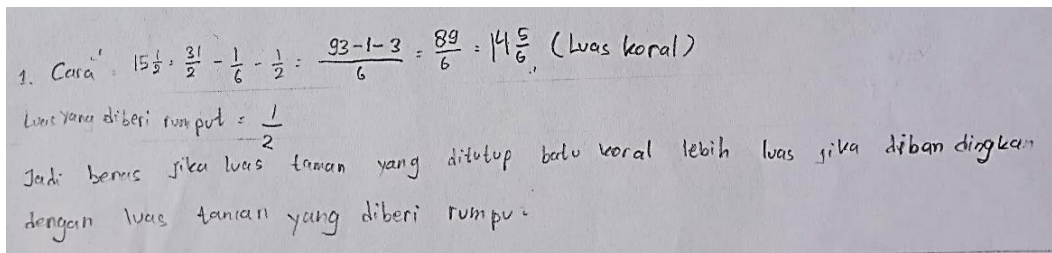 1. Cara : 15 1/2 = 31/2 - 1/6 - 1/2 = 93-1-3/6 = 89/6 = 14 5/6 (Luas koral)
Luas yang diberi rumput = 1/2
Jadi benar jika luas taman yang ditutup batu koral lebih luas jika dibandingkan
dengan luas taman yang diberi rumpu